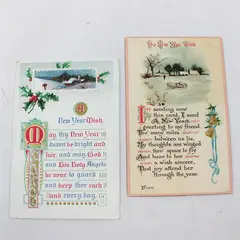 A
New Year Wish.
May thy New Year
dawn be bright and
fair, and may God
and His Holy Angels
be near to guard
and keep thee each
and every day.
My New Year Wish
I'm sending now
this card, I send
a New Year's
greeting to my friend
tho' many miles
between us lie.
My thoughts are winged
thro' space to fly
And bear to her
a wish sincere,
That joy attend her
through the year.
From